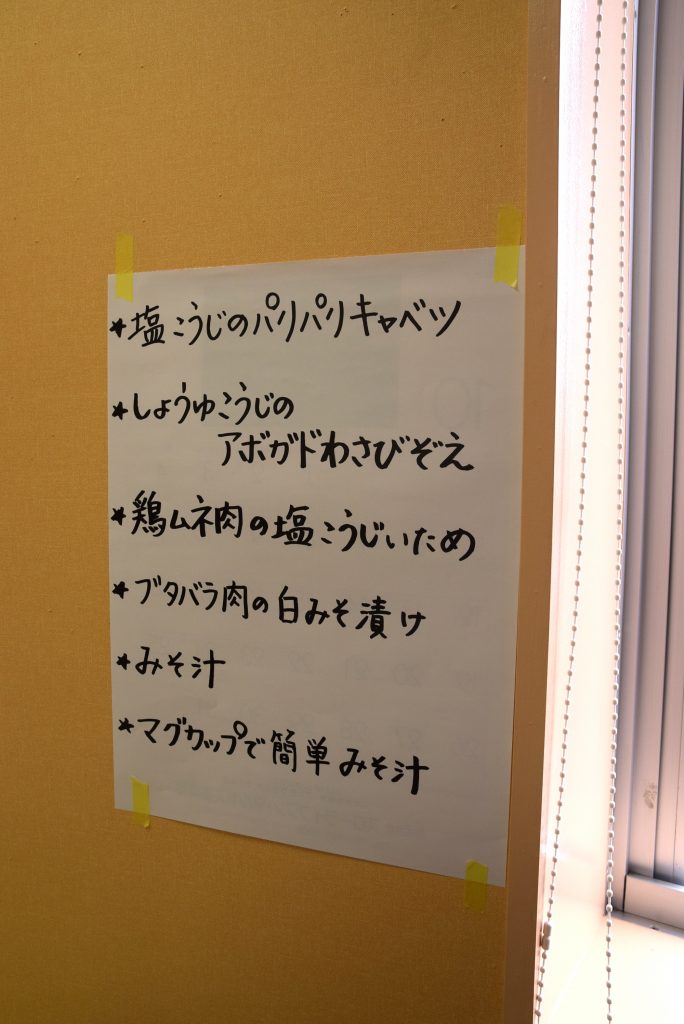 ★塩こうじのパリパリキャベツ
★しょうゆこうじの
アボガドわさびぞえ
★鶏ムネ肉の塩こうじいため
★ブタバラ肉の白みそ漬け
★みそ汁
★マグカップで簡単みそ汁